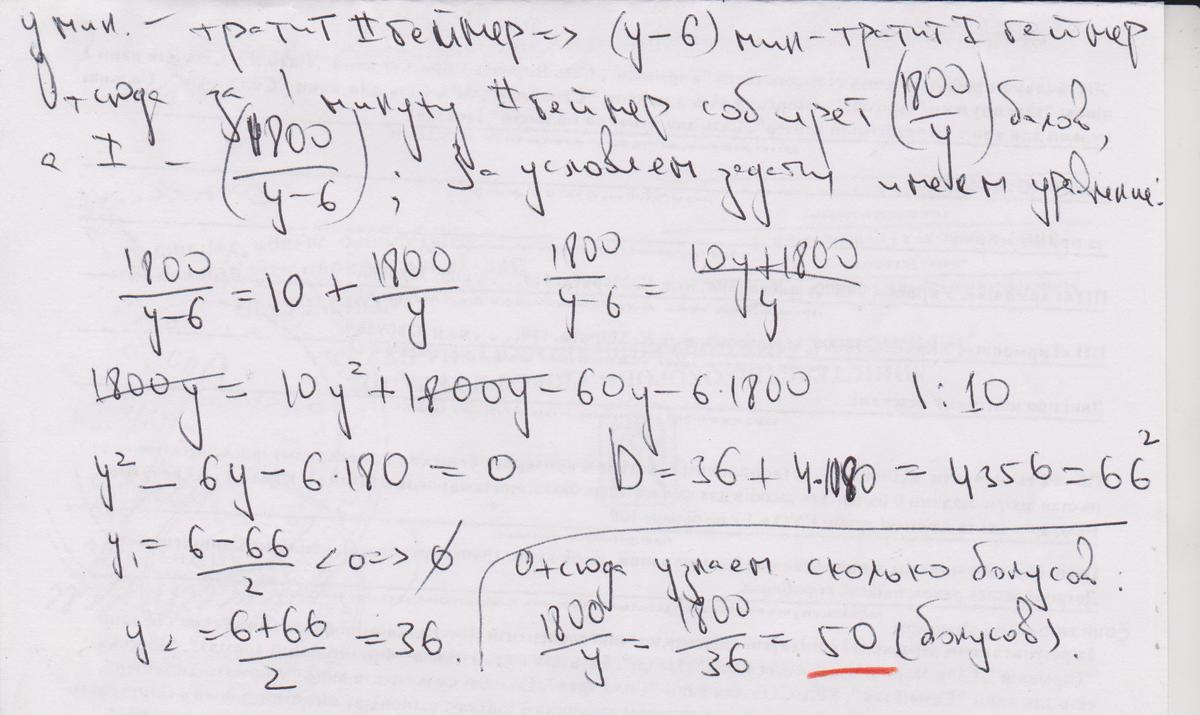 у мин. – тратит II геймер => (y–6) мин – тратит I геймер
Отсюда за 1 минуту II геймер соберёт (1800/y) балов,
а I – (1800/y–6); За условием задачи имеем уравнение:
1800/y–6 = 10 + 1800/y 1800/y–6 = 10y+1800/y
1800y = 10y² + 1800y – 60y – 6·1800 | : 10
y² – 6y – 6·180 = 0 D = 36 + 4·1080 = 4356 = 66²
y₁ = 6–66/2 <0 => ∅
Отсюда узнаем сколько бонусов:
y₂ = 6+66/2 = 36.
1800/y = 1800/36 = 50 бонусов.